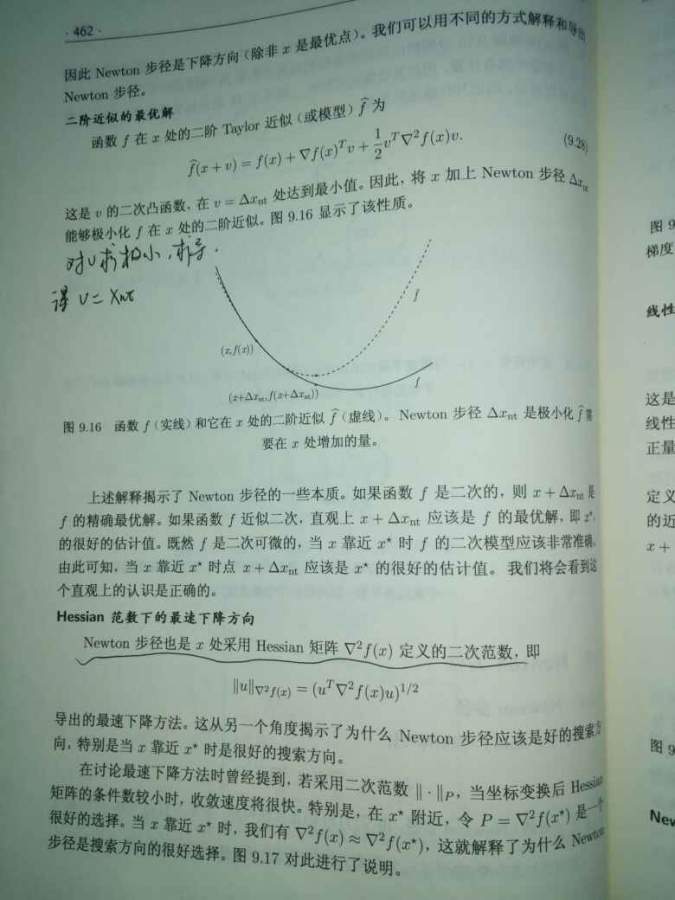 · 462 ·
因此 Newton 步径是下降方向(除非 x 是最优点)。我们可以用不同的方式解释和导出
Newton 步径。
二阶近似的最优解
函数 f 在 x 处的二阶 Taylor 近似(或模型) f̂ 为
f̂(x+v) = f(x) + ∇f(x)ᵀv + 1/2 vᵀ∇²f(x)v.
(9.28)
这是 v 的二次凸函数, 在 v = Δxnt 处达到最小值。因此, 将 x 加上 Newton 步径 Δxnt
能够极小化 f 在 x 处的二阶近似。图 9.16 显示了该性质。
对v求极小,求导.
得 v= Xnt
f̂
(x,f(x))
(x+Δxnt,f(x+Δxnt))
f
图 9.16 函数 f (实线) 和它在 x 处的二阶近似 f̂ (虚线)。Newton 步径 Δxnt 是极小化 f̂ 需
要在 x 处增加的量。
上述解释揭示了 Newton 步径的一些本质。如果函数 f 是二次的, 则 x + Δxnt 是
f 的精确最优解。如果函数 f 近似二次, 直观上 x + Δxnt 应该是 f 的最优解, 即 x*,
的很好的估计值。既然 f 是二次可微的, 当 x 靠近 x* 时 f 的二次模型应该非常准确。
由此可知, 当 x 靠近 x* 时点 x + Δxnt 应该是 x* 的很好的估计值。 我们将会看到这
个直观上的认识是正确的。
Hessian 范数下的最速下降方向
Newton 步径也是 x 处采用 Hessian 矩阵 ∇²f(x) 定义的二次范数, 即
‖u‖∇²f(x) = (uᵀ∇²f(x)u)^1/2
导出的最速下降方法。这从另一个角度揭示了为什么 Newton 步径应该是好的搜索方
向, 特别是当 x 靠近 x* 时是很好的搜索方向。
在讨论最速下降方法时曾经提到, 若采用二次范数 ‖·‖P, 当坐标变换后 Hessian
矩阵的条件数较小时, 收敛速度将很快。特别是, 在 x* 附近, 令 P = ∇²f(x*) 是一个
很好的选择。当 x 靠近 x* 时, 我们有 ∇²f(x) ≈ ∇²f(x*), 这就解释了为什么 Newton
步径是搜索方向的很好选择。图 9.17 对此进行了说明。
图 9
梯度
线性
这是
线性
正量
定义
的近
x +
图 9
New